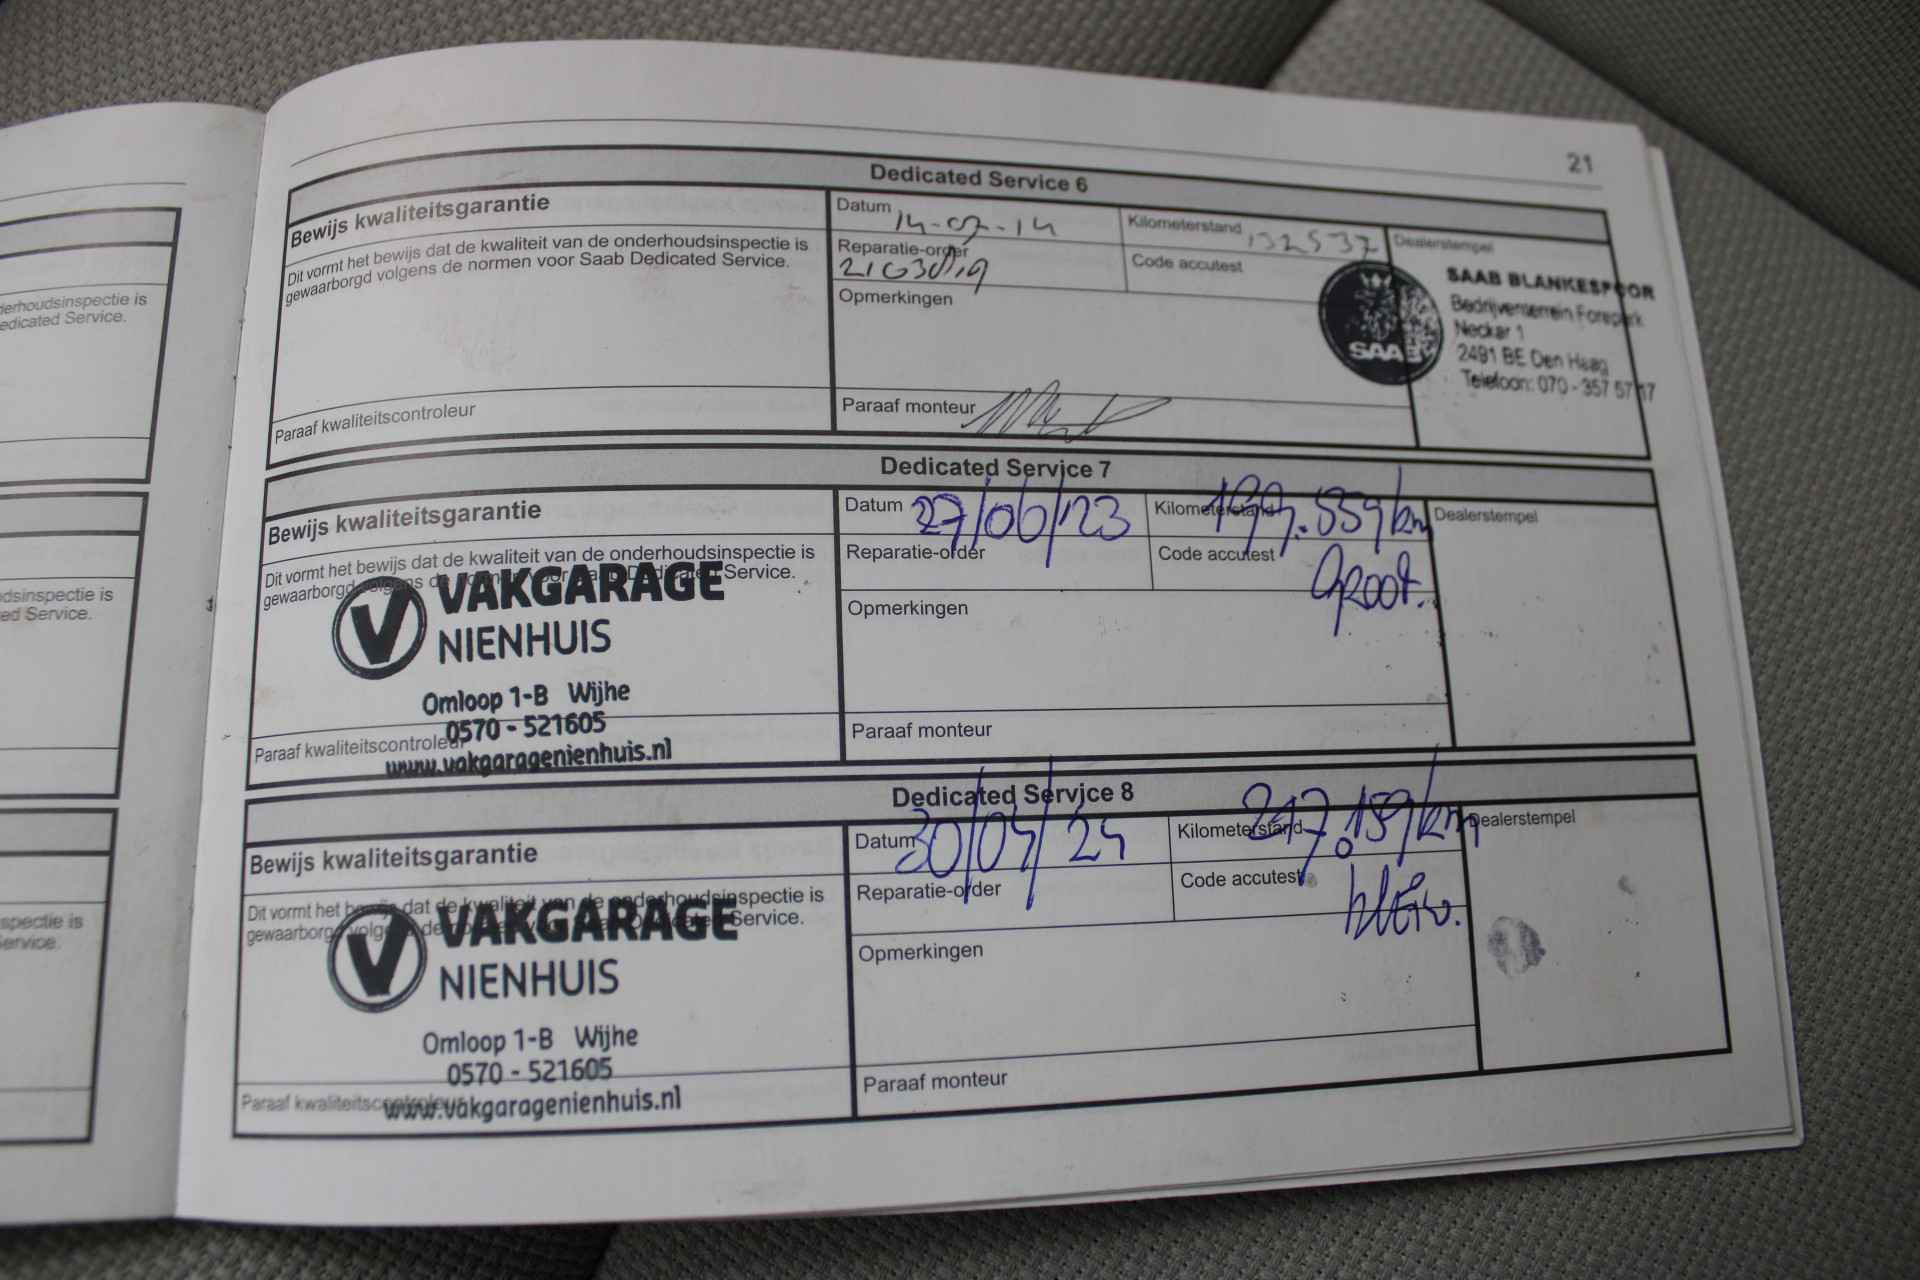 21
Dedicated Service 6
Bewijs kwaliteitsgarantie
Dit vormt het bewijs dat de kwaliteit van de onderhoudsinspectie is
gewaarborgd volgens de normen voor Saab Dedicated Service.
Paraaf kwaliteitscontroleur
Datum 14-07-14
Kilometerstand 132537
Reparatie-order
Code accutest
Opmerkingen
Paraaf monteur
Dealerstempel
SAAB
SAAB BLANKESPOOR
Bedrijventerrein Forepark
Neckar 1
2491 BE Den Haag
Telefoon: 070 - 357 57 17
Dedicated Service 7
Bewijs kwaliteitsgarantie
Dit vormt het bewijs dat de kwaliteit van de onderhoudsinspectie is
gewaarborgd volgens de normen voor Saab Dedicated Service.
VAKGARAGE
NIENHUIS
Omloop 1-B Wijhe
0570 - 521605
www.vakgaragenienhuis.nl
Paraaf kwaliteitscontroleur
Datum 27/06/23
Kilometerstand 199.559 km
Reparatie-order
Code accutest
Groot.
Opmerkingen
Paraaf monteur
Dealerstempel
Dedicated Service 8
Bewijs kwaliteitsgarantie
Dit vormt het bewijs dat de kwaliteit van de onderhoudsinspectie is
gewaarborgd volgens de normen voor Saab Dedicated Service.
VAKGARAGE
NIENHUIS
Omloop 1-B Wijhe
0570 - 521605
www.vakgaragenienhuis.nl
Paraaf kwaliteitscontroleur
Datum 30/04/24
Kilometerstand 217.159 km
Reparatie-order
Code accutest
klein.
Opmerkingen
Paraaf monteur
Dealerstempel
derhoudsinspectie is
edicated Service.
dsinspectie is
ed Service.
spectie is
ervice.